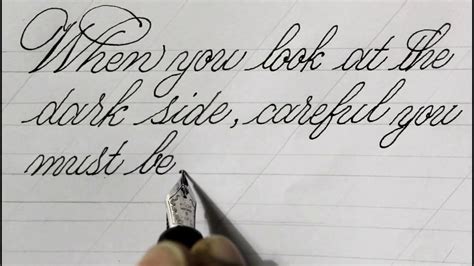 When you look at the
dark side, careful you
must be